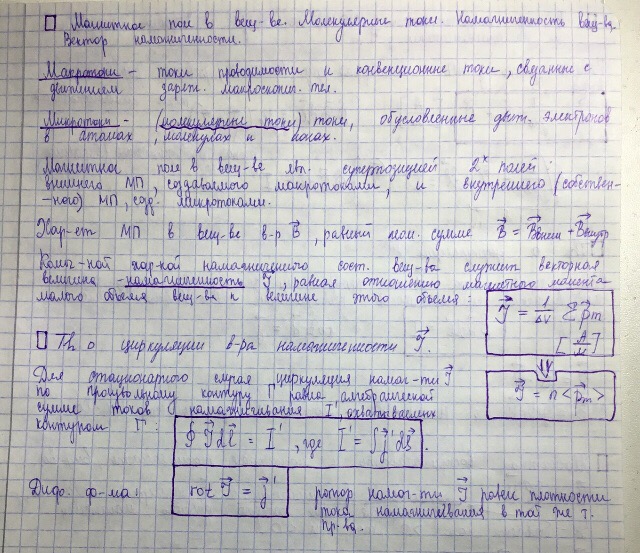 Магнитное поле в вещ-ве. Молекулярные токи. Намагниченность вещ-ва.
Вектор намагниченности.
Макротоки – токи проводимости и конвекционные токи, связанные с
движением заряж. макроскопич. тел.
Микротоки – (молекулярные токи) токи, обусловленные движ. электронов
в атомах, молекулах и ионах.
Магнитное поле в вещ-ве явл. суперпозицией 2х полей:
внешнего МП, создаваемого макротоками, и внутреннего (собствен-
-ного) МП, созд. микротоками.
Хар-ет МП в вещ-ве в-р B⃗, равный геом. сумме B⃗ = B⃗внеш + B⃗внутр
Колич-ной хар-кой намагниченного сост. вещ-ва служит векторная
величина -намагниченность J⃗, равная отношению магнитного момента
малого объема вещ-ва к величине этого объема:
J⃗ = 1/ΔV Σ p⃗m
[A/м]
J⃗ = n <p⃗m>
Th о циркуляции в-ра намагниченности J⃗.
Для стационарного случая циркуляция намаг-ти J⃗
по произвольному контуру Г равна алгебраической
сумме токов намагничивания I', охватываемых
контуром Г:
∮ J⃗dl⃗ = I', где I' = ∫j⃗'dS⃗.
Дифф. ф-ма:
rot J⃗ = j⃗'
ротор намаг-ти J⃗ равен плотности
тока намагничивания в той же т.
пр-ва.